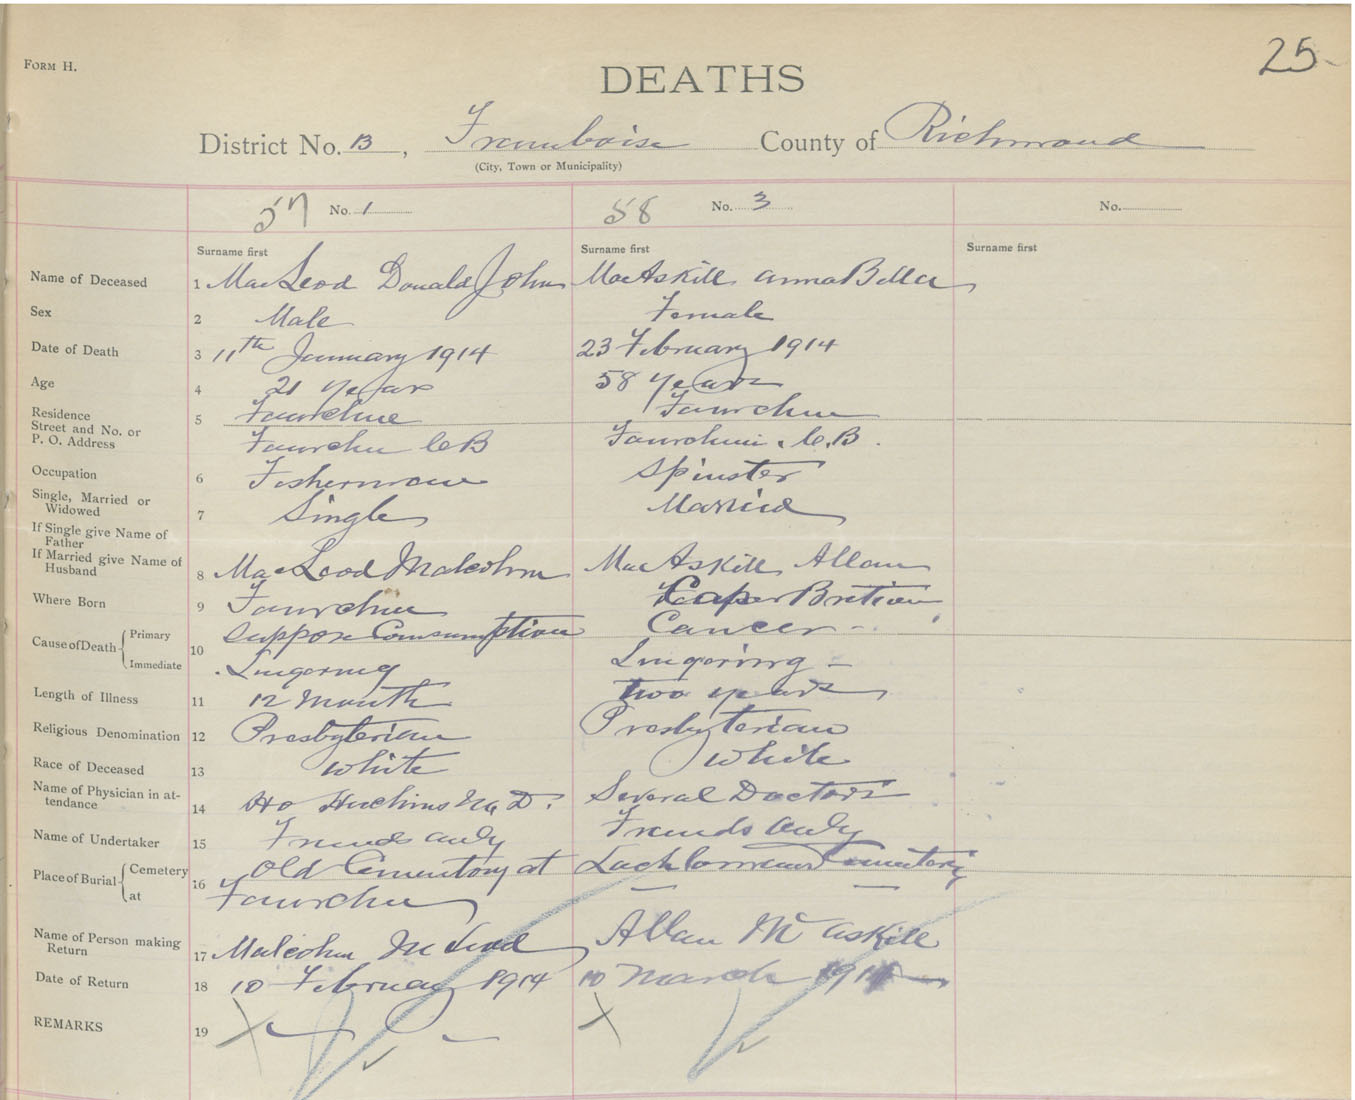 25
FORM H.
DEATHS
District No. B, Framboise County of Richmond
(City, Town or Municipality)
57 No. 1 58 No. 3 No.
Surname first Surname first Surname first
Name of Deceased 1 MacLeod Donald John MacAskill AnnaBella
Sex 2 Male Female
Date of Death 3 11th January 1914 23 February 1914
Age 4 21 years 58 years
Residence 5 Fourchue Fourchu
Street and No. or
P. O. Address Fourchu C B Fourchui. C. B.
Occupation 6 Fisherman Spinster
Single, Married or
Widowed 7 Single Married
If Single give Name of
Father
If Married give Name of
Husband 8 MacLeod Malcolm MacAskill Allan
Where Born 9 Fourchu Cape Bretion
Cause of Death Primary 10 Suppose Consumption Cancer
Immediate Lingoring Lingoring
Length of Illness 11 12 Month two years
Religious Denomination 12 Presbyterian Presbyterian
Race of Deceased 13 White White
Name of Physician in at-
tendance 14 Hutchins M. D. Several Doctors
Name of Undertaker 15 Frends only Frends only
Place of Burial Cemetery 16 Old Cementory at Cementory
at Fourchu
Name of Person making
Return 17 Malcolm McLeod Allan Mc Askill
Date of Return 18 10 February 1914 10 March 1914
REMARKS 19